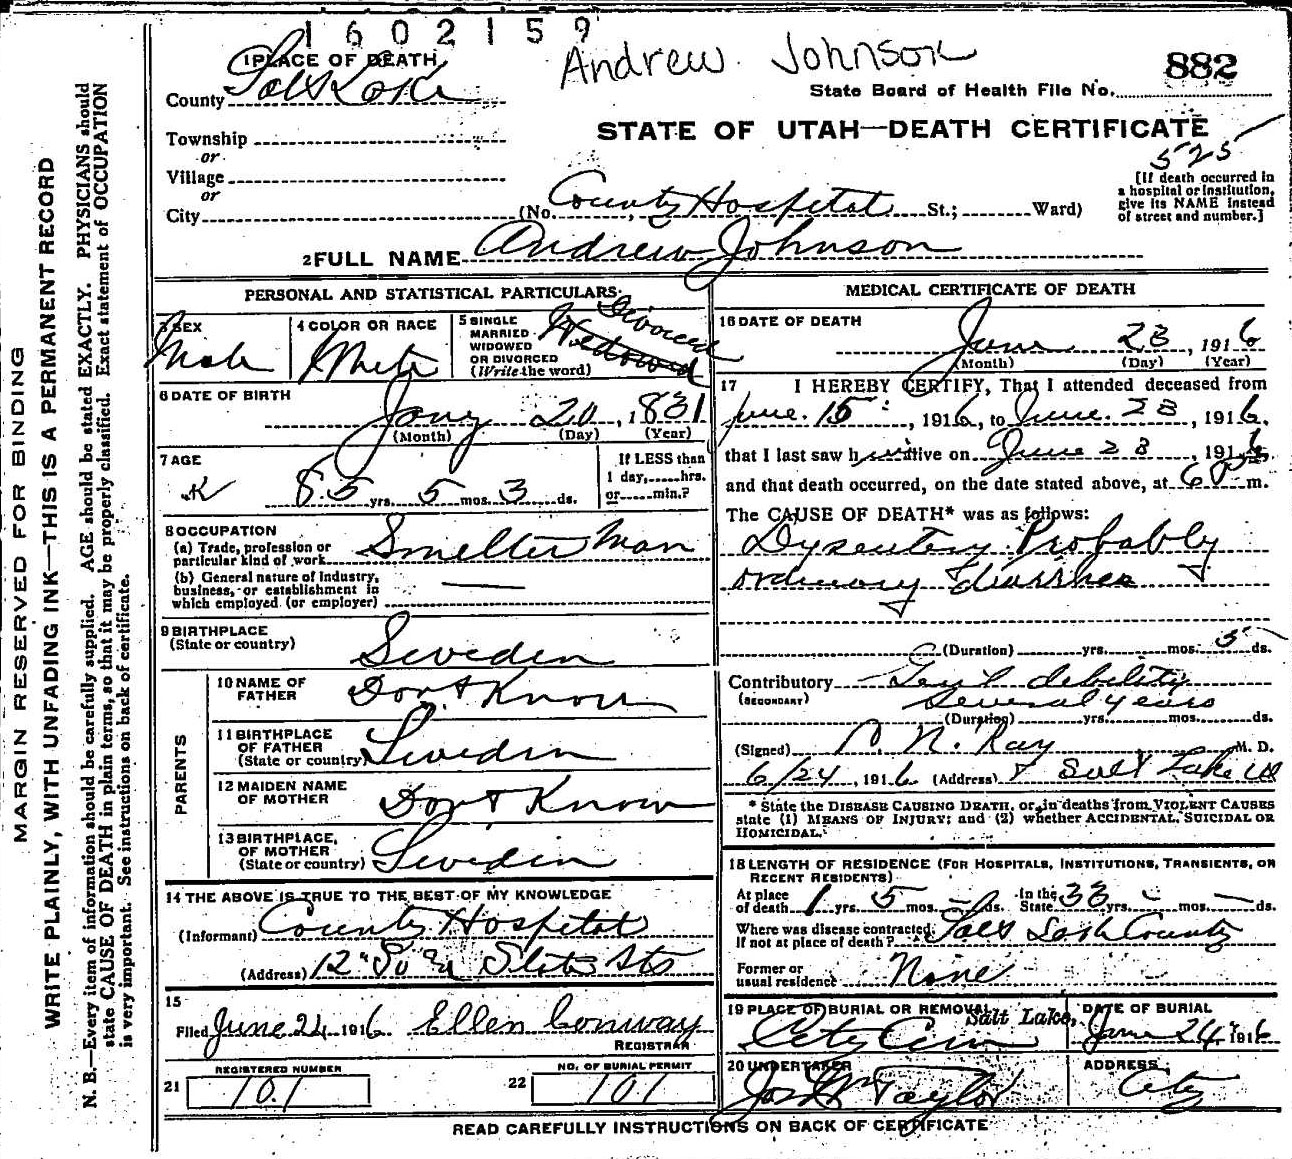 1602159
Andrew Johnson
882
1 PLACE OF DEATH
State Board of Health File No.
County Salt Lake
STATE OF UTAH—DEATH CERTIFICATE
Township
or
525
Village
[If death occurred in
a hospital or institution,
give its NAME instead
of street and number.]
or
City (No. County Hospital St.; Ward)
2 FULL NAME Andrew Johnson
PERSONAL AND STATISTICAL PARTICULARS
3 SEX
Male
4 COLOR OR RACE
White
5 SINGLE
MARRIED
WIDOWED
OR DIVORCED
(Write the word)
Divorced
Widowed
6 DATE OF BIRTH
Jany 20, 1831
(Month) (Day) (Year)
7 AGE
85 yrs. 5 mos. 3 ds.
If LESS than
1 day, hrs.
or min.?
8 OCCUPATION
(a) Trade, profession or
particular kind of work Smelter Man
(b) General nature of industry,
business, or establishment in
which employed (or employer)
9 BIRTHPLACE
(State or country) Sweden
PARENTS
10 NAME OF
FATHER Don't Know
11 BIRTHPLACE
OF FATHER
(State or country) Sweden
12 MAIDEN NAME
OF MOTHER Don't Know
13 BIRTHPLACE
OF MOTHER
(State or country) Sweden
14 THE ABOVE IS TRUE TO THE BEST OF MY KNOWLEDGE
(Informant) County Hospital
(Address) 12" So State Sts
15
Filed June 24 1916 Ellen Conway
REGISTRAR
REGISTERED NUMBER
21 101
NO. OF BURIAL PERMIT
22 101
MEDICAL CERTIFICATE OF DEATH
16 DATE OF DEATH
June 23, 1916
(Month) (Day) (Year)
17 I HEREBY CERTIFY, That I attended deceased from
June 15, 1916, to June 23, 1916,
that I last saw him alive on June 23, 1916
and that death occurred, on the date stated above, at 6 P m.
The CAUSE OF DEATH* was as follows:
Dysentery Probably
ordinary diarrhea
(Duration) yrs. mos. 5 ds.
Contributory Gen'l debility
(SECONDARY) several years
(Duration) yrs. mos. ds.
(Signed) N. Ray M. D.
6/24, 1916 (Address) Salt Lake
* State the DISEASE CAUSING DEATH, or, in deaths from VIOLENT CAUSES
state (1) MEANS OF INJURY; and (2) whether ACCIDENTAL, SUICIDAL OR
HOMICIDAL.
18 LENGTH OF RESIDENCE (FOR HOSPITALS, INSTITUTIONS, TRANSIENTS, OR
RECENT RESIDENTS)
At place
of death 1 yrs. 5 mos. – ds. In the
State 33 yrs. – mos. – ds.
Where was disease contracted,
if not at place of death? Salt Lake County
Former or
usual residence None
19 PLACE OF BURIAL OR REMOVAL
Salt Lake,
City Cem
DATE OF BURIAL
June 24 1916
20 UNDERTAKER
Jos Wm Taylor
ADDRESS
City
READ CAREFULLY INSTRUCTIONS ON BACK OF CERTIFICATE
MARGIN RESERVED FOR BINDING
WRITE PLAINLY, WITH UNFADING INK—THIS IS A PERMANENT RECORD
N. B.—Every item of information should be carefully supplied. AGE should be stated EXACTLY. PHYSICIANS should
state CAUSE OF DEATH in plain terms, so that it may be properly classified. Exact statement of OCCUPATION
is very important. See instructions on back of certificate.